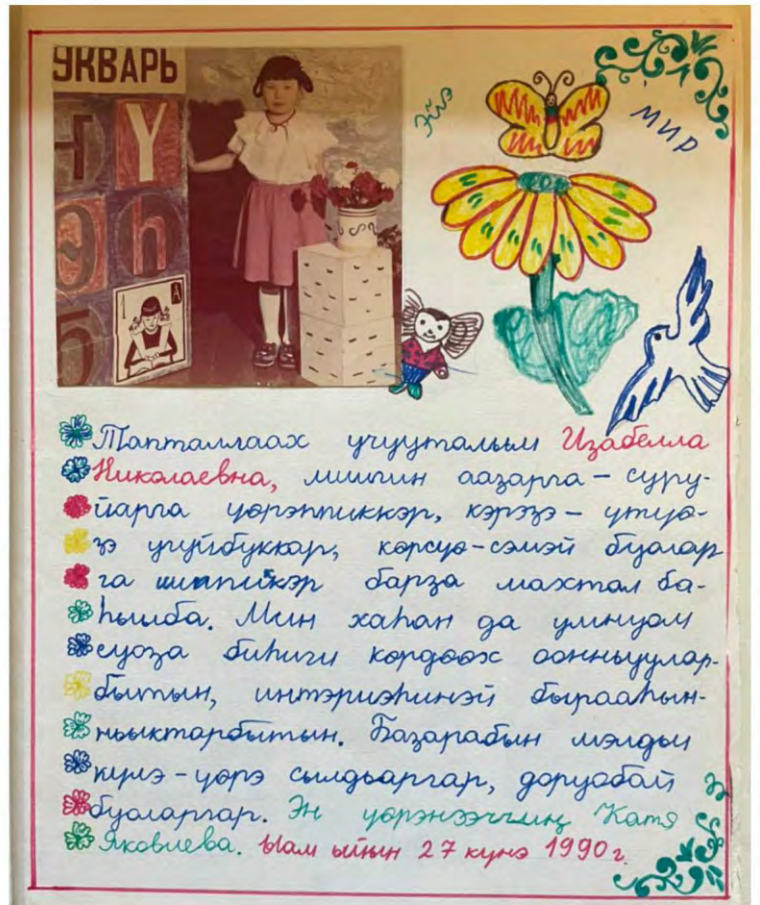 УКВАРЬ
Ҥ Ү
Ө һ
Б
А
Эйэ
МИР
Тапталлаах учууталым Изабелла
Николаевна, миигин ааҕарга – суру-
йарга үөрэппиккэр, кэрэҕэ – үтүө-
ҕэ угуйбуккар, көрсүө-сэмэй буолар
га ииппиккэр барҕа махтал ба-
һыыба. Мин хаһан да умнуом
суоҕа биһиги көрдөөх оонньуулар-
бытын, интэриэһинэй бырааһын-
ньыктарбытын. Баҕарабын мэлдьи
күлэ-үөрэ сылдьаргар, доруобай
буоларгар. Эн үөрэнээччиҥ Катя
Яковлева. Ыам ыйын 27 күнэ 1990 г.